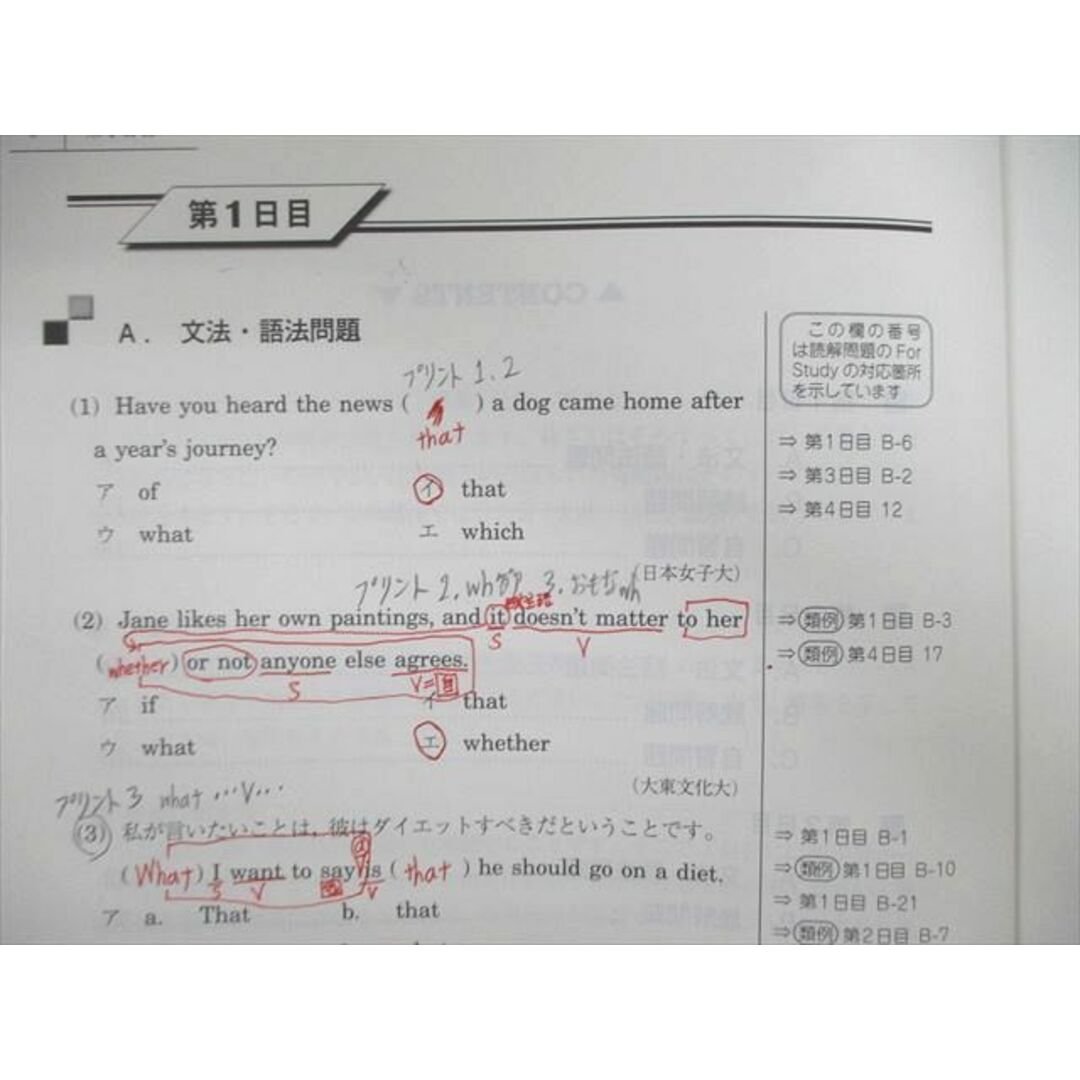 第1日目
A. 文法・語法問題
この欄の番号
は読解問題の For
Study の対応箇所
を示しています
プリント 1、2
(1) Have you heard the news ( ) a dog came home after
that
a year's journey?
ア of イ that
ウ what エ which
(日本女子大)
⇒ 第1日目 B-6
⇒ 第3日目 B-2
⇒ 第4日目 12
プリント 2. wh 3. おもなwh
(2) Jane likes her own paintings, and it doesn't matter to her
S V
(whether) or not anyone else agrees.
S V=自
ア if イ that
ウ what エ whether
(大東文化大)
⇒ 類例 第1日目 B-3
⇒ 類例 第4日目 17
プリント3 what …V…
(3) 私が言いたいことは、彼はダイエットすべきだということです。
(What) I want to say is (that) he should go on a diet.
S V V
ア a. That b. that
⇒ 第1日目 B-1
⇒ 類例 第1日目 B-10
⇒ 第1日目 B-21
⇒ 類例 第2日目 B-7